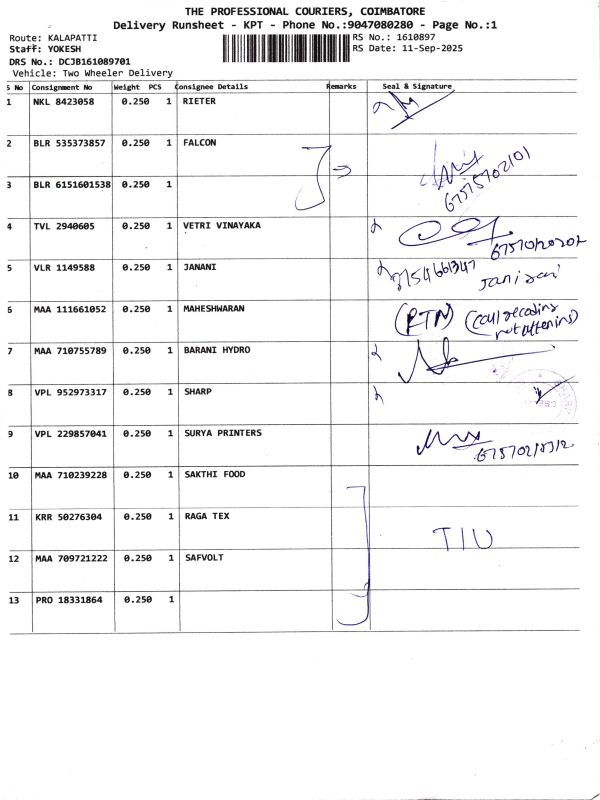 THE PROFESSIONAL COURIERS, COIMBATORE
Delivery Runsheet - KPT - Phone No.:9047080280 - Page No.:1
Route: KALAPATTI
Staff: YOKESH
DRS No.: DCJB161089701
Vehicle: Two Wheeler Delivery
RS No.: 1610897
RS Date: 11-Sep-2025
S No Consignment No Weight PCS Consignee Details Remarks Seal & Signature
1 NKL 8423058 0.250 1 RIETER
2 BLR 535373857 0.250 1 FALCON
3 BLR 6151601538 0.250 1
4 TVL 2940605 0.250 1 VETRI VINAYAKA
5 VLR 1149588 0.250 1 JANANI
6 MAA 111661052 0.250 1 MAHESHWARAN (RTN)
7 MAA 710755789 0.250 1 BARANI HYDRO
8 VPL 952973317 0.250 1 SHARP
9 VPL 229857041 0.250 1 SURYA PRINTERS
10 MAA 710239228 0.250 1 SAKTHI FOOD
11 KRR 50276304 0.250 1 RAGA TEX TIU
12 MAA 709721222 0.250 1 SAFVOLT
13 PRO 18331864 0.250 1